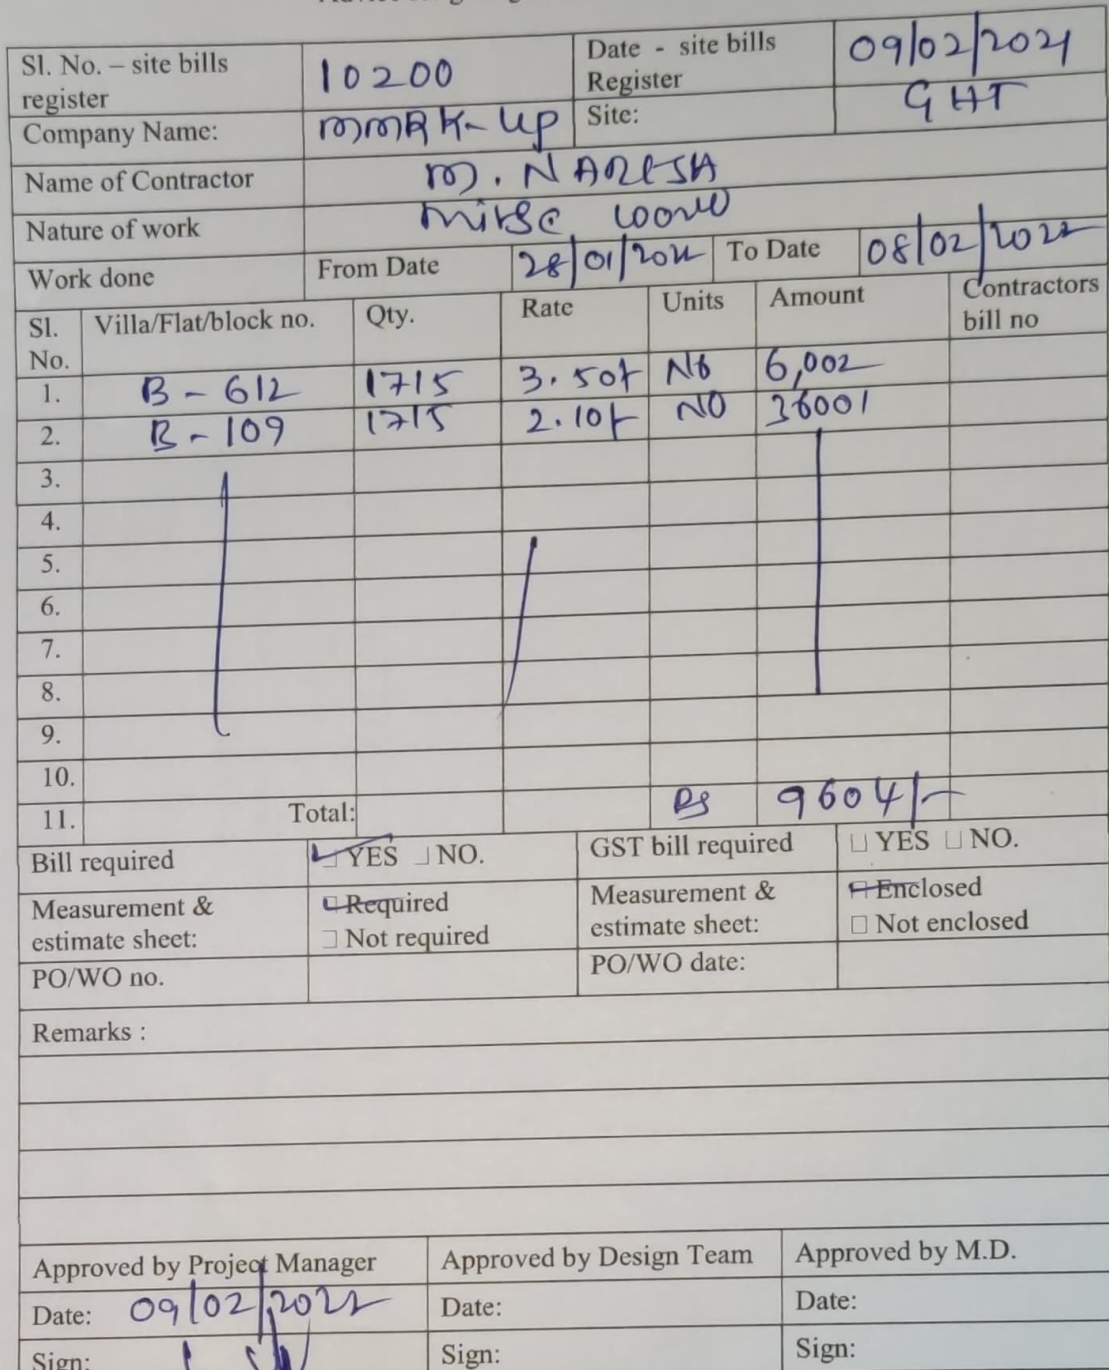 Sl. No. – site bills register 10200 Date - site bills Register 09/02/2021
Company Name: MMRK-UP Site: GHT
Name of Contractor M. NARESH
Nature of work
Work done From Date 28/01/2022 To Date 08/02/2022
Sl. No. Villa/Flat/block no. Qty. Rate Units Amount Contractors bill no
1. B - 612 1715 3.50/- No 6,002
2. B - 109 1715 2.10/- NO 36001
3.
4.
5.
6.
7.
8.
9.
10.
11. Total: Rs 9604/-
Bill required YES NO. GST bill required YES NO.
Measurement & estimate sheet: Required Not required Measurement & estimate sheet: Enclosed Not enclosed
PO/WO no. PO/WO date:
Remarks :
Approved by Project Manager Approved by Design Team Approved by M.D.
Date: 09/02/2022 Date: Date:
Sign: Sign: Sign: